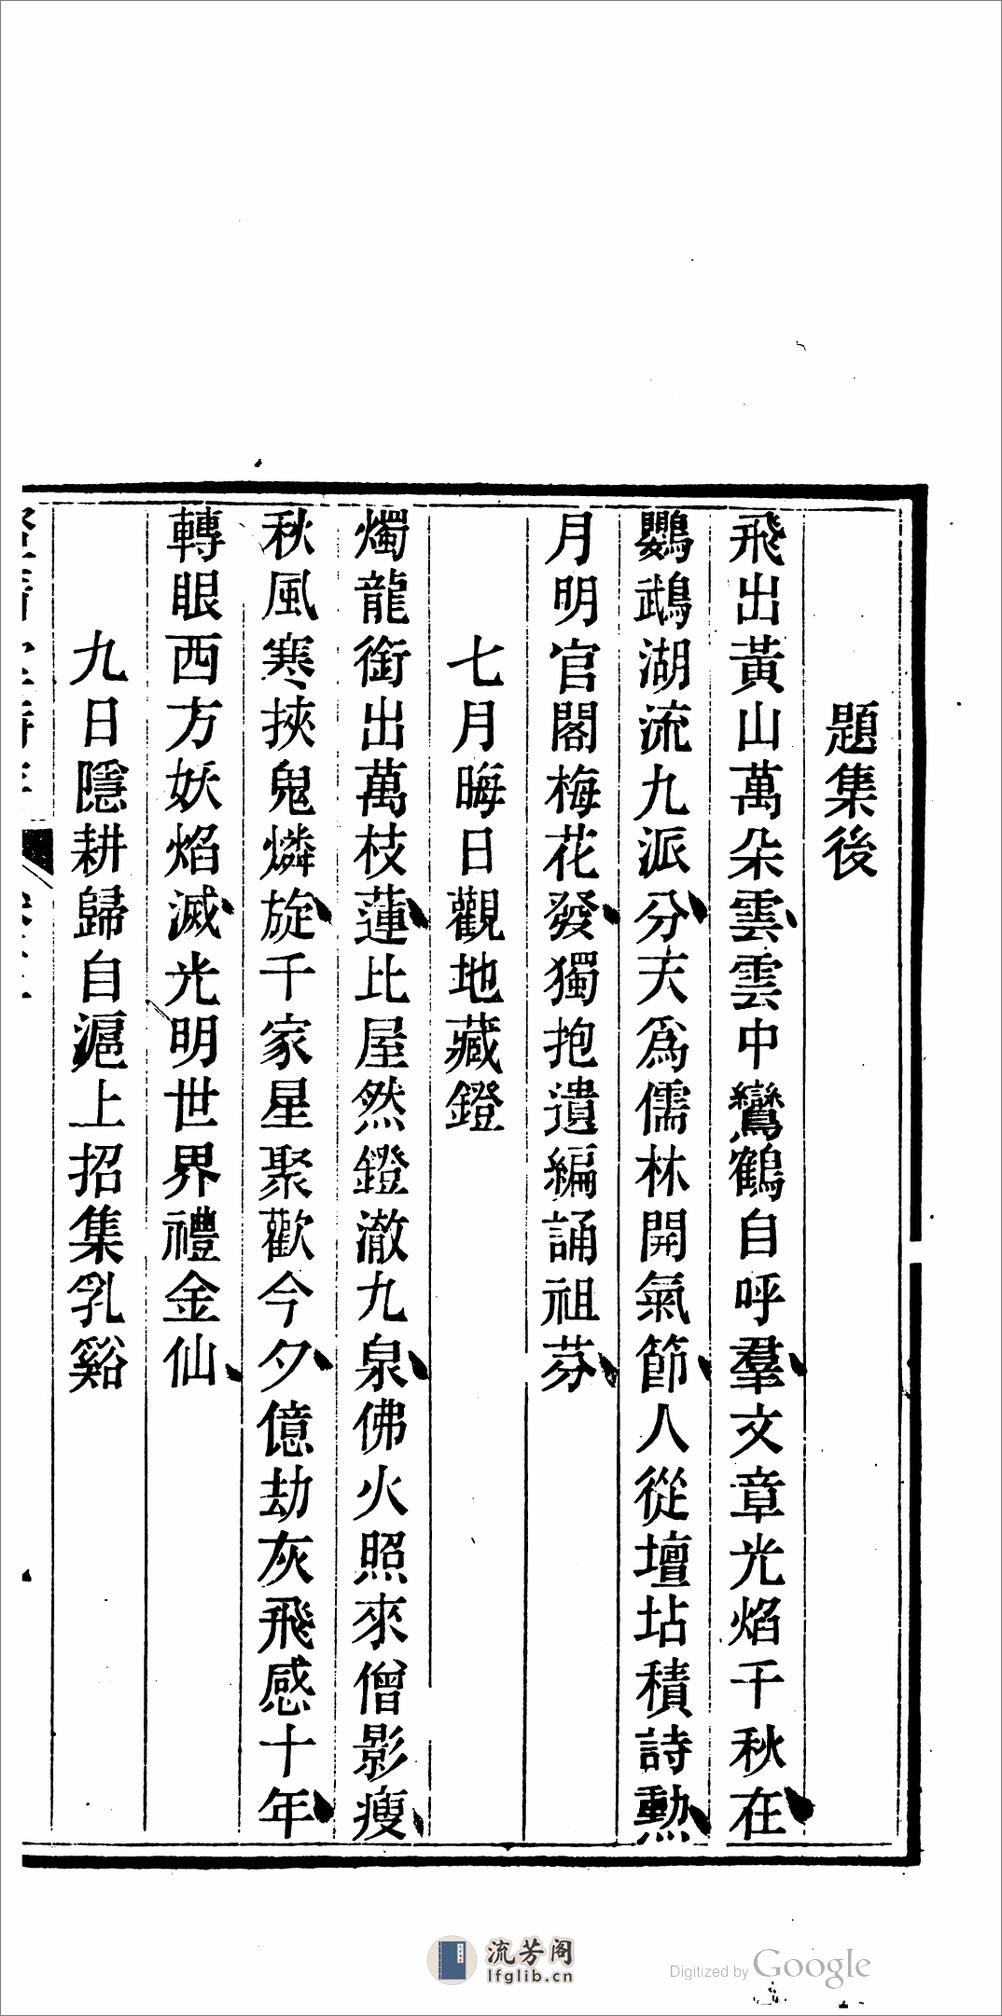 題集後
飛出黃山萬朵雲雲中鸞鶴自呼羣文章光焰千秋在
鸚鵡湖流九派分天為儒林開氣節人從壇坫積詩勲
月明官閣梅花發獨抱遺編誦祖芬
七月晦日觀地藏鐙
燭龍銜出萬枝蓮比屋然鐙澈九泉佛火照來僧影瘦
秋風寒挾鬼燐旋千家星聚歡今夕億劫灰飛感十年
轉眼西方妖焰滅光明世界禮金仙
九日隱耕歸自滬上招集乳谿
流芳阁
lfglib.cn
Digitized by Google